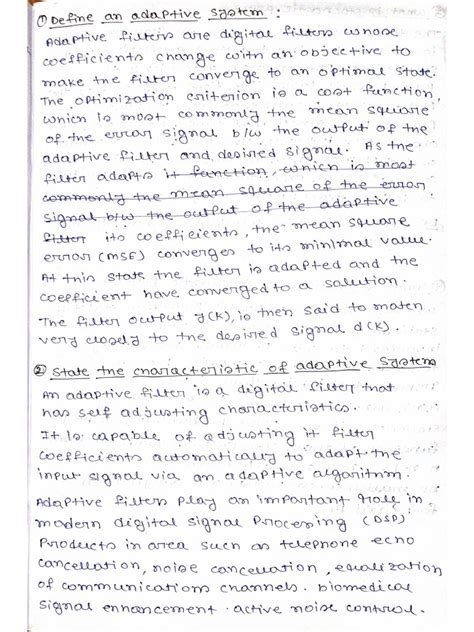 ① Define an adaptive system :
Adaptive filters are digital filters whose
coefficients change with an objective to
make the filter converge to an optimal state.
The optimization criterion is a cost function,
which is most commonly the mean square
of the error signal b/w the output of the
adaptive filter and desired signal. As the
filter adapts it function, which is most
commonly the mean square of the error
signal b/w the output of the adaptive
filter its coefficients, the mean square
error (MSE) converges to its minimal value.
At this state the filter is adapted and the
coefficient have converged to a solution.
The filter output y(k), is then said to match
very closely to the desired signal d(k).
② State the characteristic of adaptive system
An adaptive filter is a digital filter that
has self adjusting characteristics.
It is capable of adjusting it filter
coefficients automatically to adapt the
input signal via an adaptive algorithm.
Adaptive filters play an important role in
modern digital signal Processing (DSP)
Products in area such as telephone echo
cancellation, noise cancellation, equalization
of communications channels. biomedical
signal enhancement. active noise control.